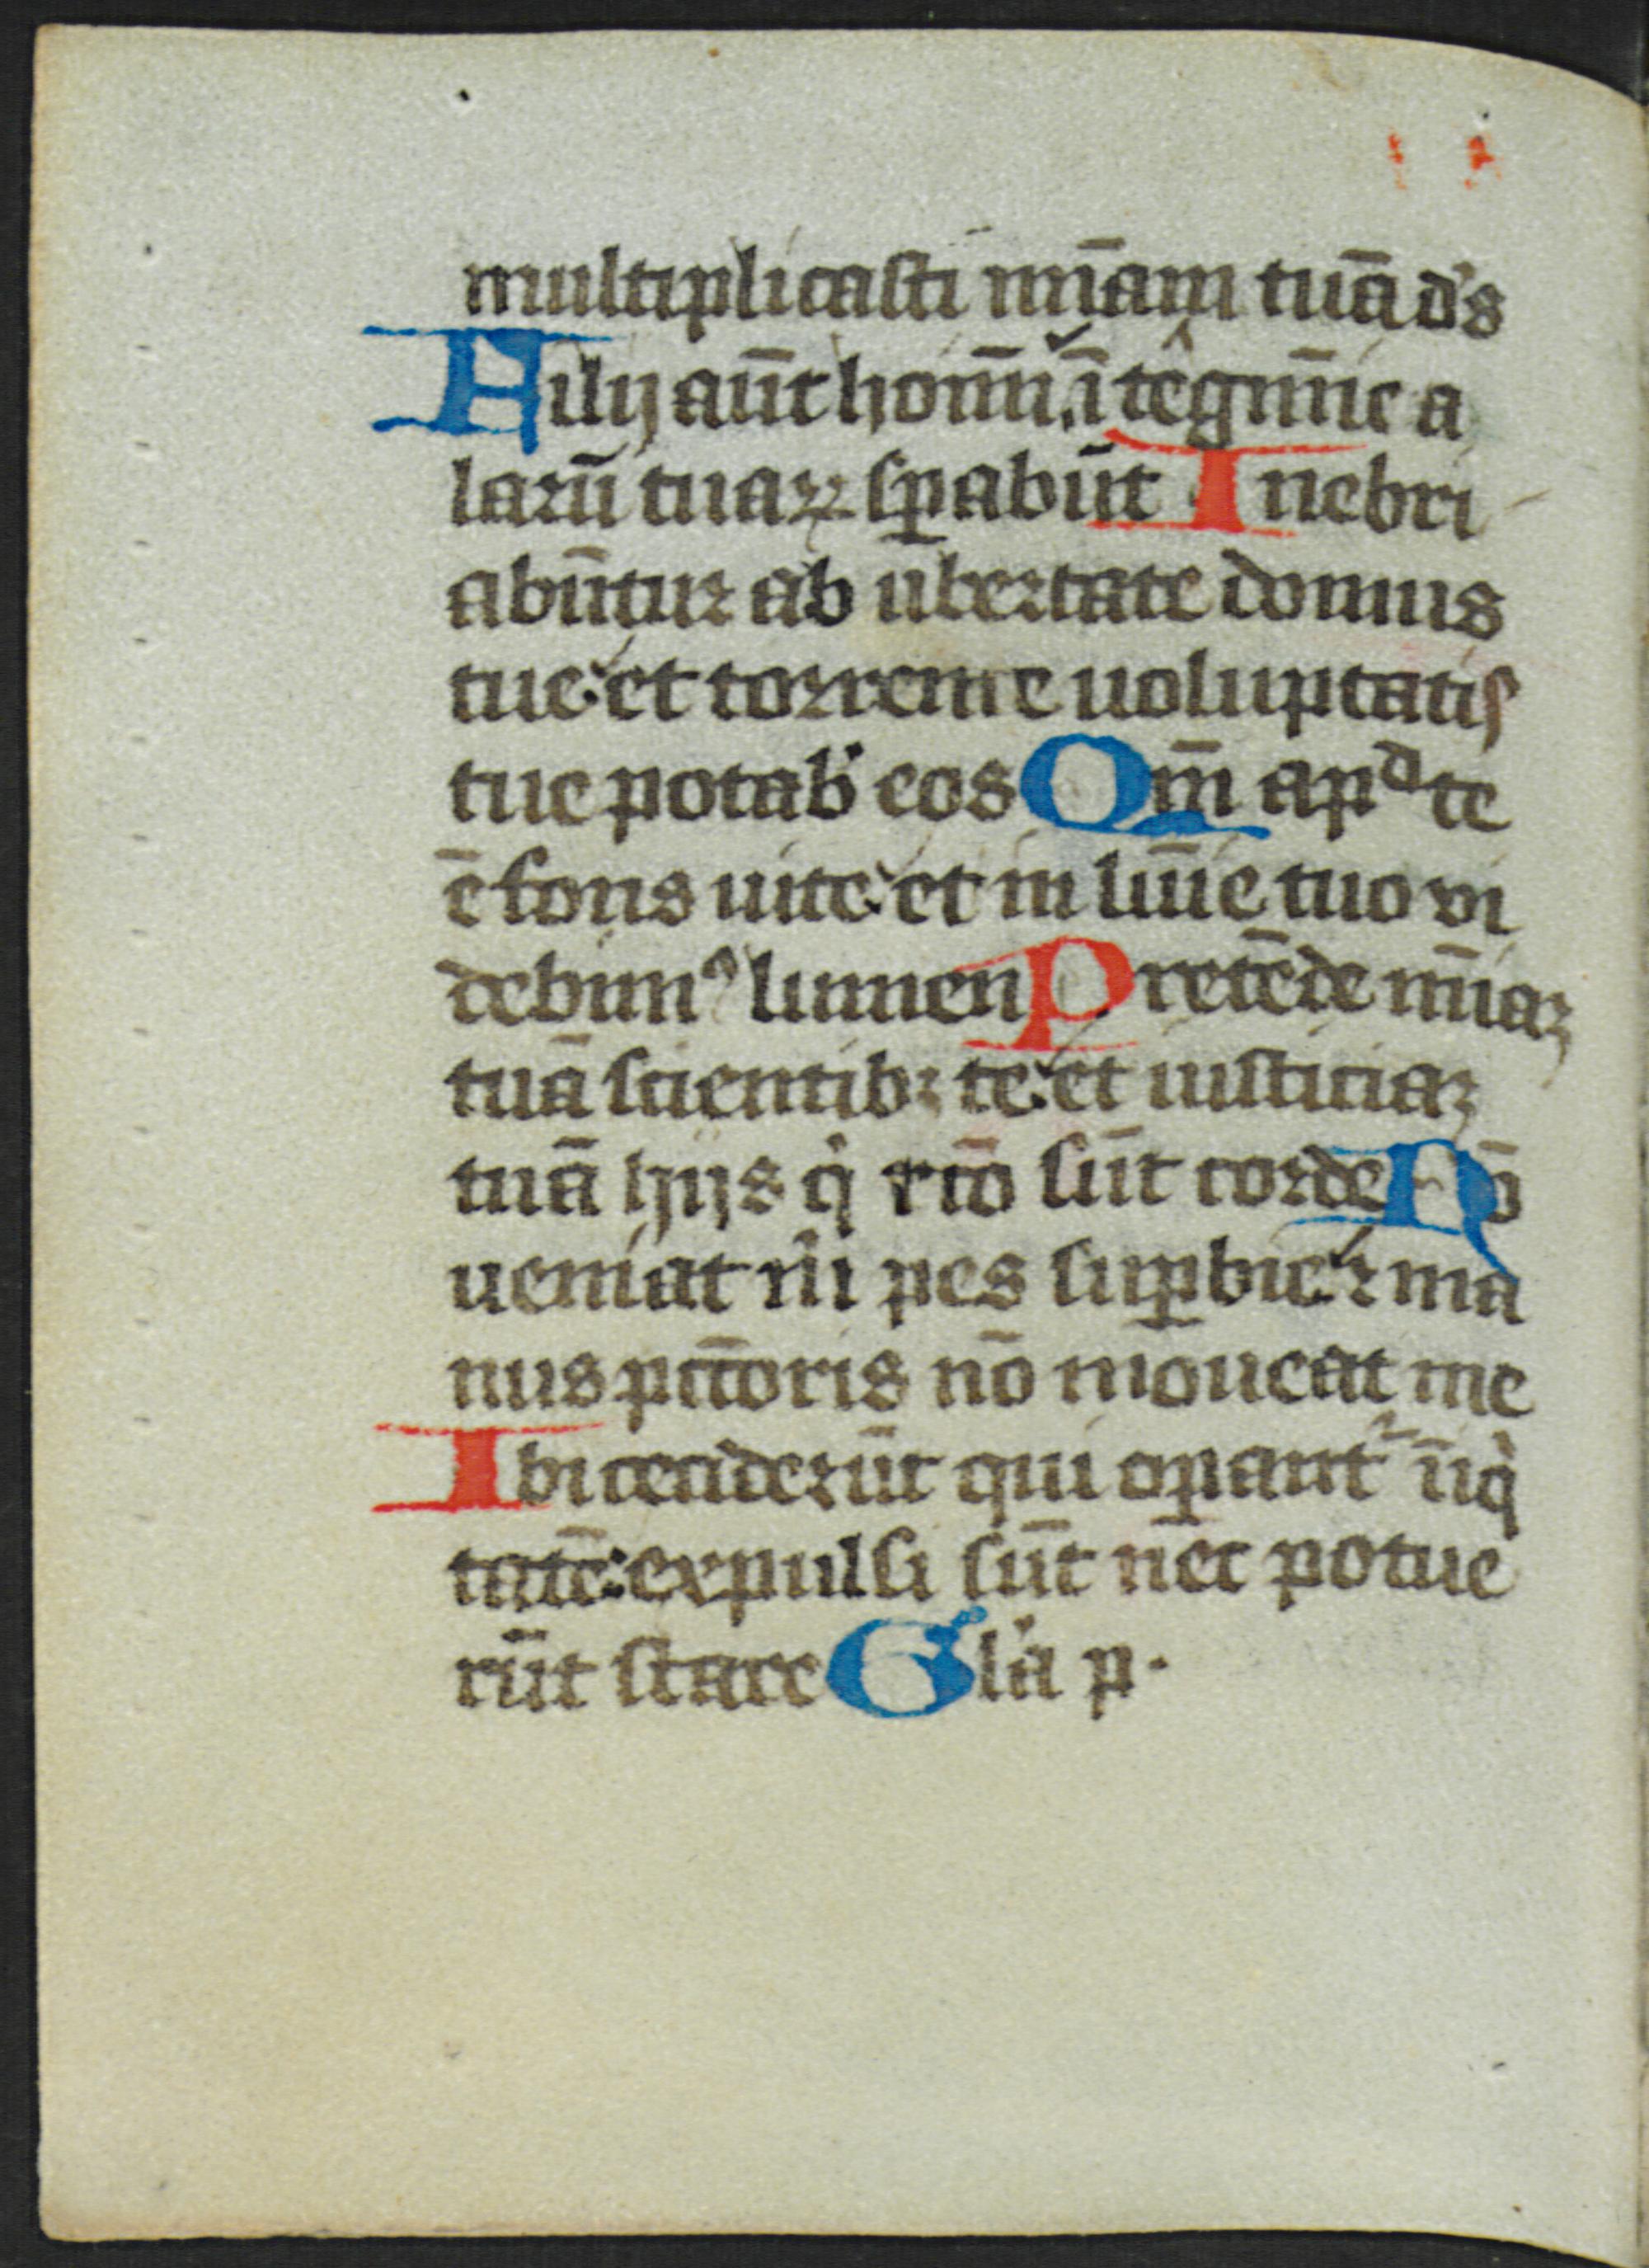 multiplicasti mīam tuā d's
Filij aūt homī. ī tēgmīe a
larū tuaꝝ sꝑabūt Inebri
abūtur ab ubertate domus
tue et torrente uoluptatis
tue potab' eos Qm̄ apᵈ te
ē fons uite et in lūīe tuo vi
debimꝰ lumen Pretēde mīaꝫ
tuā scientibꝫ te et iusticiaꝫ
tuā hijs q̇ rc̄o sūt corde Nō
ueniat ṁ pes suꝑbie ⁊ ma
nus pct̄oris nō moueat me
Ibi ceciderūt qui oꝑant᷑ īiq̇
tatē: expulsi sūt nec potue
rūt stare Gl'a p.